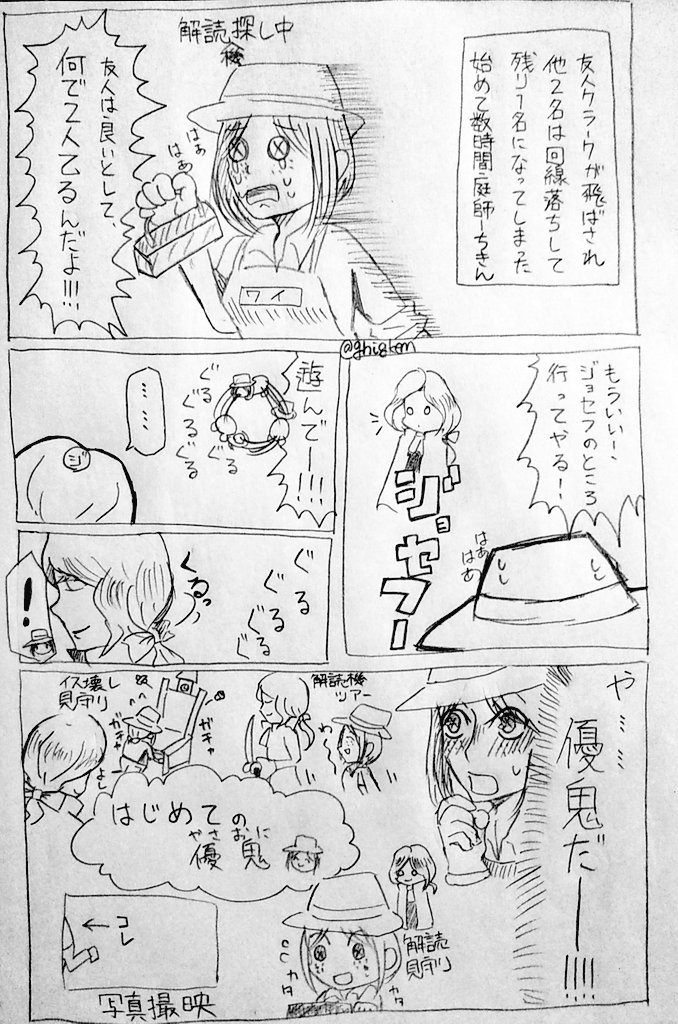 友人クラークが飛ばされ
他2名は回線落ちして
残り1名になってしまった
始めて数時間庭師ーちきん
解読探し中
機
はぁ
はぁ
友人は良いとして、
何で2人乙るんだよ!!!
ワイ
@ghigkem
もういいー、
ジョセフのところ
行ってやる!
ジョセフー
はぁ
はぁ
遊んでー!!!
ぐる
ぐるぐる
ぐる
……
ジ
ぐる
ぐる
ぐる
くるっ
!
や……
優鬼だー!!!!
解読機
ツアー
イス壊し
見守り
ガキャ
ガキャ
よし
はじめての
やさおに
優鬼
解読
見守り
カタ
カタ
←コレ
写真撮映